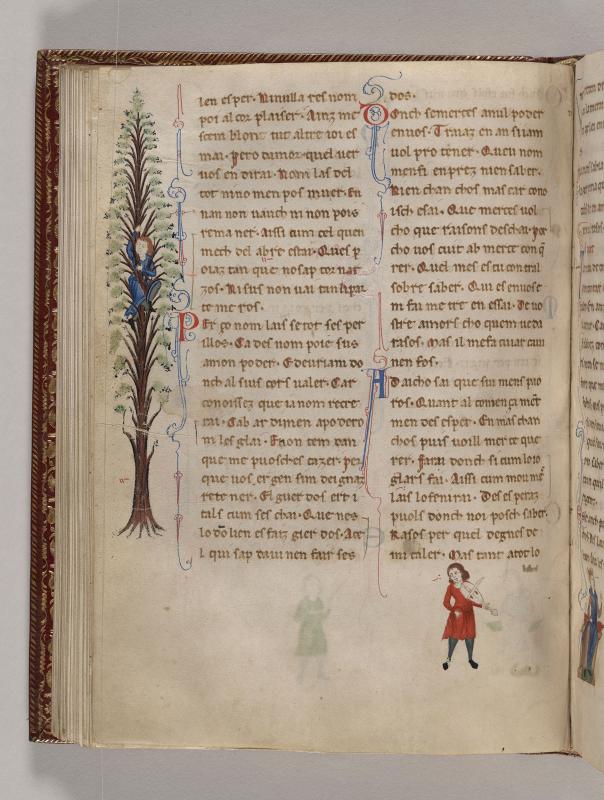 len esper. Ninulla res nom
pot al cor plaiser. Ainz me
sem blont tut altre ioi es
mai. Pero damor quel uer
uos en dirai. Nom lais del
tot nino men pos muer. En
nan non uauch ni non pois
rema ner. Aissi cum cel quen
mech del abre estai. Ques p
oiaz tan que no sap tor nar
zos. Ni sus non uai tan li par
te me ros.
Per zo nom lais se tot ses per
illos. Ca des nom poie sus
amon poder. E deuriam do
nch al sius cors ualer. Car
conoissez que ia nom recre
rai. Cab ar dimen apodero
m les glai. Enon tem dan
que me puosches cazer. per
que uos er gen sim deignaz
rete ner. El guer dos ert i
tals cum ses chai. Que neis
lo don lien es faiz gier dos. Ace
l qui sap daui nen fair ses
dos.
Donch semerces anul poder
en uos. Traiaz en an siiam
uol pro tener. Qeu nom
men fi en prez nien saber.
Nien chan chos mas car cono
isch e sai. Que merces uol
cho que raisons deschai. por
cho uos cuit ab merce con q
rer. Quel mes es cu contral
sobre saber. Qui es enuos e
m fai me tre en essai. De uo
stre amors cho quem ueda
rasos. Mas il me fa cuiar cum
nen fos.
Ad aicho sai que sui mens pao
ros. Quant al comen za ment
men des esper. En mas chan
chos puis uoill mer ce que
rer. Farai donch si cum lo io
glars fai. Aissi cum mou mo
lais lo fenirai. Des es peraz
puols donch noi posch saber.
Rasos per quel degnes de
mi caler. Mas tant atot lo